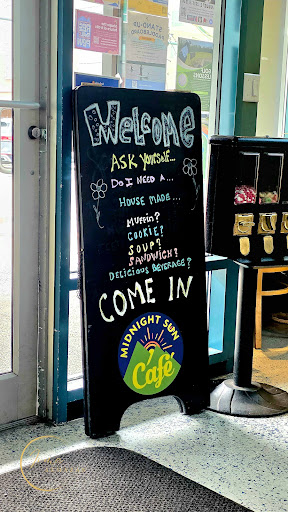 Welcome
ASK YOURSELF...
DO I NEED A...
HOUSE MADE...
MUFFIN?
COOKIE?
SOUP?
SANDWICH?
DELICIOUS BEVERAGE?
COME IN
MIDNIGHT SUN
Café